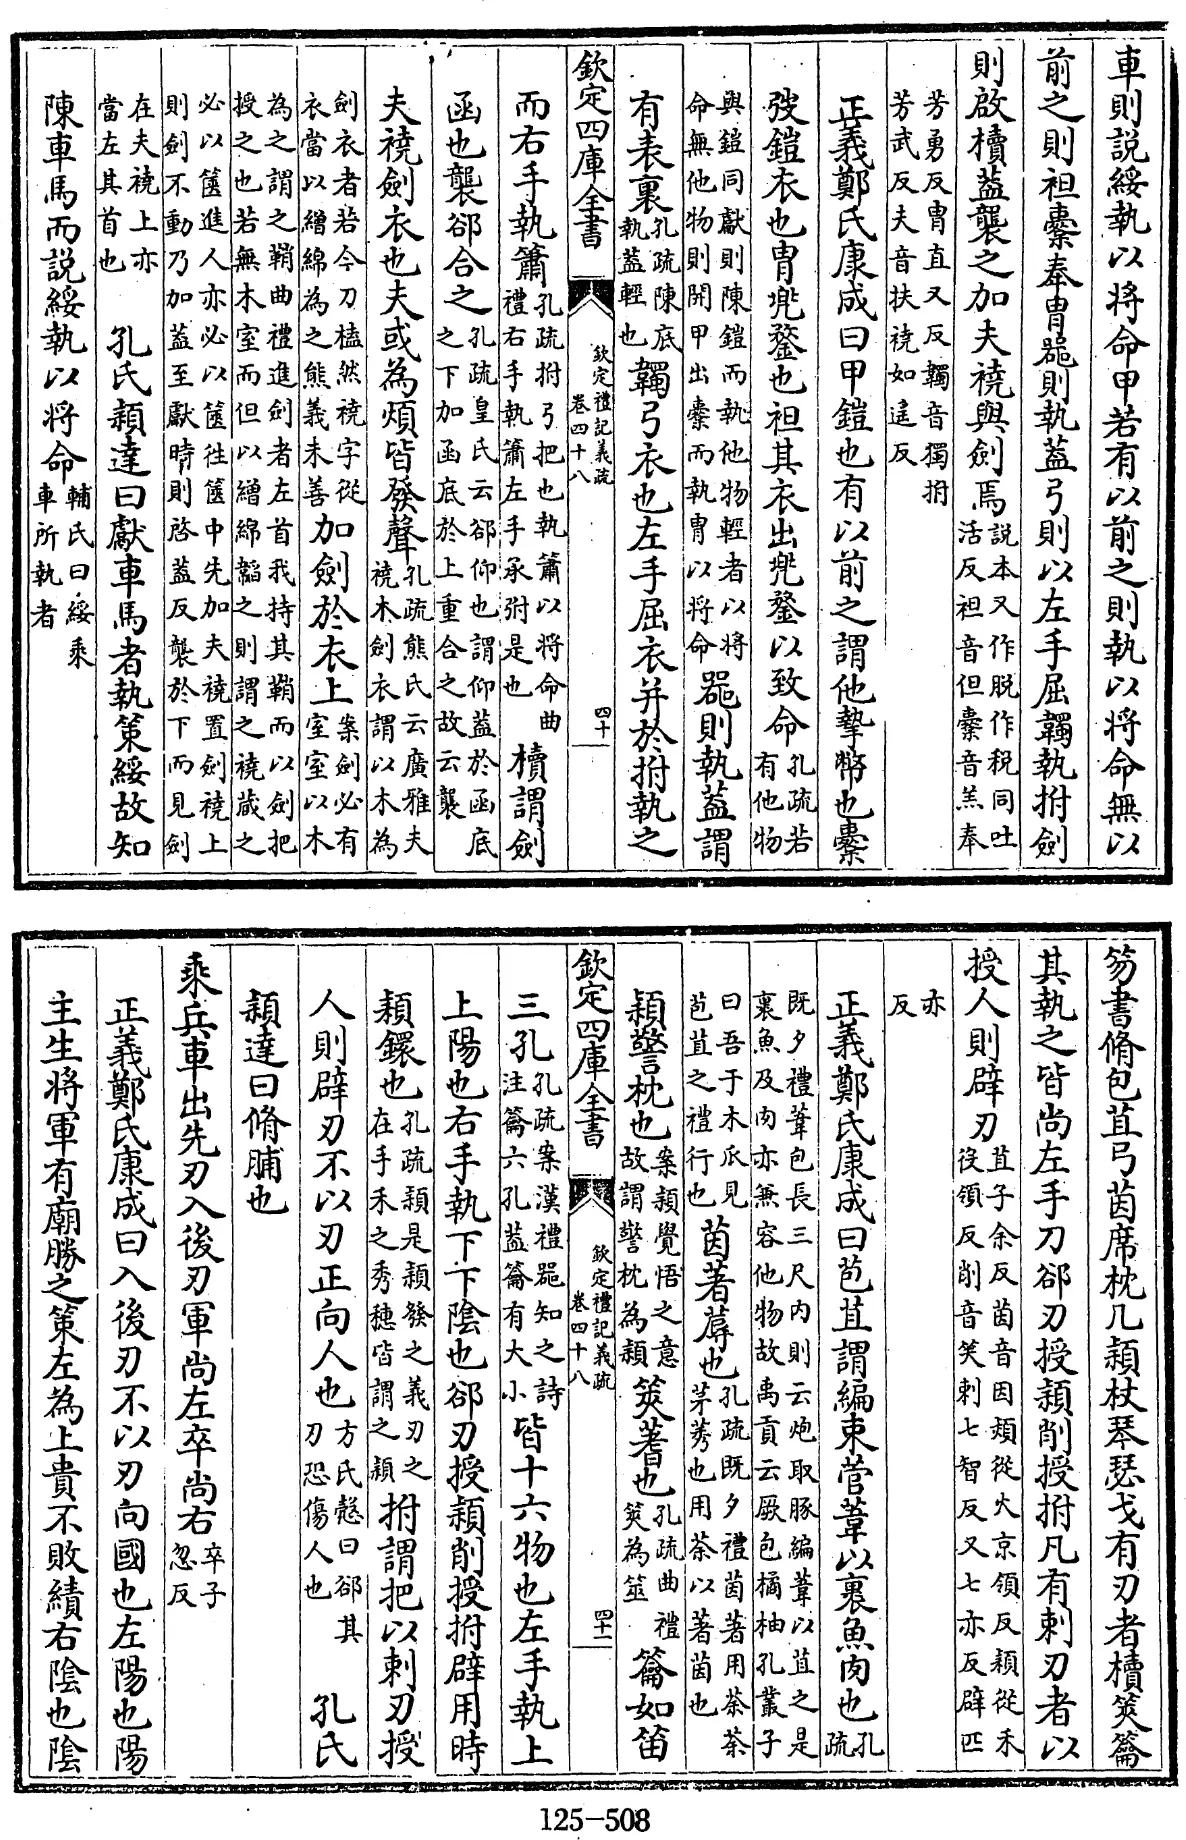 車則説綏執以將命甲若有以前之則執以將命無以
前之則袒櫜奉胄器則執蓋弓則以左手屈韣執拊劍
則啟櫝蓋襲之加夫襓與劍焉説本又作脱作税同吐
活反袒音但櫜音羔奉
芳勇反胄直又反韣音獨拊
芳武反夫音扶襓如遥反
正義鄭氏康成曰甲鎧也有以前之謂他摯幣也櫜
弢鎧衣也胄兠鍪也袒其衣出兠鍪以致命孔疏若
有他物
與鎧同獻則陳鎧而執他物輕者以將
命無他物則開甲出櫜而執胄以將命器則執蓋謂
有表裏孔疏陳底
執蓋輕也韣弓衣也左手屈衣并於拊執之
欽定四庫全書
欽定禮記義疏
卷四十八
四十
而右手執簫孔疏拊弓把也執簫以將命曲
禮右手執簫左手承弣是也櫝謂劍
函也襲郤合之孔疏皇氏云郤仰也謂仰蓋於函底
之下加函底於上重合之故云襲
夫襓劍衣也夫或為煩皆發聲孔疏熊氏云廣雅夫
襓木劍衣謂以木為
劍衣者若今刀榼然襓字從
衣當以繒綿為之熊義未善加劍於衣上案劍必有
室室以木
為之謂之鞘曲禮進劍者左首我持其鞘而以劍把
授之也若無木室而但以繒綿韜之則謂之襓蕆之
必以篋進人亦必以篋徃篋中先加夫襓置劍襓上
則劍不動乃加蓋至獻時則啓蓋反襲於下而見劍
在夫襓上亦
當左其首也孔氏穎達曰獻車馬者執策綏故知
陳車馬而説綏執以將命輔氏曰綏乘
車所執者
笏書脩苞苴弓茵席枕几穎杖琴瑟戈有刃者櫝筴籥
其執之皆尚左手刀郤刃授穎削授拊凡有刺刃者以
授人則辟刃苴子余反茵音因熲從火京領反穎從禾
役領反削音笑刺七智反又七亦反辟匹
亦
反
正義鄭氏康成曰苞苴謂編束菅葦以裹魚肉也孔
疏
既夕禮葦包長三尺内則云炮取豚編葦以苴之是
裹魚及肉亦兼容他物故禹貢云厥包橘柚孔叢子
曰吾于木瓜見
苞苴之禮行也茵著蓐也孔疏既夕禮茵著用荼荼
茅莠也用荼以著茵也
穎警枕也案穎覺悟之意
故謂警枕為穎筴蓍也孔疏曲禮
筴為筮籥如笛
欽定四庫全書
欽定禮記義疏
卷四十八
四十一
三孔孔疏案漢禮器知之詩
注籥六孔蓋籥有大小皆十六物也左手執上
上陽也右手執下下陰也郤刃授穎削授拊辟用時
穎鐶也孔疏穎是穎發之義刃之
在手禾之秀穗皆謂之穎拊謂把以刺刃授
人則辟刃不以刃正向人也方氏慤曰郤其
刃恐傷人也孔氏
穎達曰脩脯也
乘兵車出先刃入後刃軍尚左卒尚右卒子
忽反
正義鄭氏康成曰入後刃不以刃向國也左陽也陽
主生將軍有廟勝之策左為上貴不敗績右陰也陰
125-508